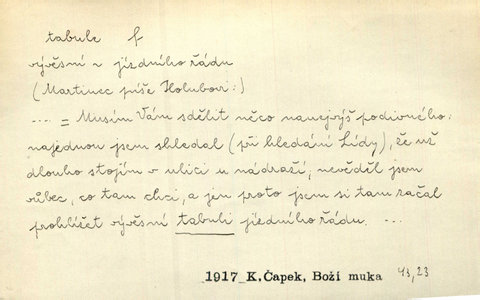 tabule f
vývěsní v jízdního řádu
(Martinec píše Holubovi:)
.... = Musím Vám sdělit něco nanejvýš podivného:
najednou jsem shledal (při hledání Lídy), že už
dlouho stojím v ulici u nádraží; nevěděl jsem
vůbec, co tam chci, a jen proto jsem si tam začal
prohlížet vývěsní tabuli jízdního řádu. ...
1917 K.Čapek, Boží muka 43,23